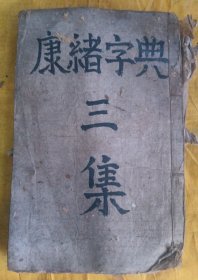 康緒字典
三
集